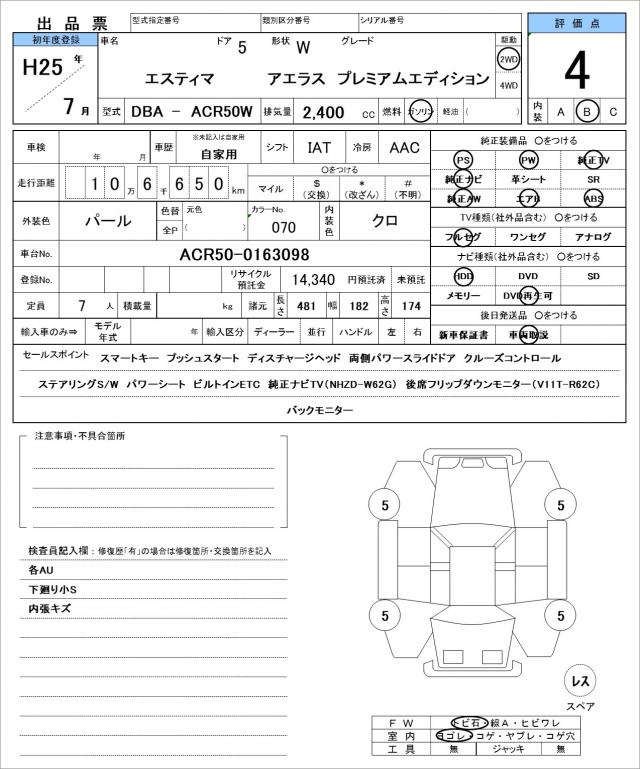 出品票 型式指定番号 類別区分番号 シリアル番号 評価点
初年度登録 車名 ドア 5 形状 W グレード 駆動
H25 年 7 月 エスティマ アエラス プレミアムエディション 2WD 4WD 4
型式 DBA － ACR50W 排気量 2,400 CC 燃料 ガソリン 軽油 ( ) 内装 A B C
車検 年 月 車歴 ※未記入は自家用 自家用 シフト IAT 冷房 AAC
走行距離 1 0 万 6 千 6 5 0 km マイル 〇をつける $ (交換) * (改ざん) # (不明)
外装色 パール 色替 全P 元色 ( ) カラーNo. 070 内装色 クロ
車台No. ACR50-0163098
登録No. リサイクル預託金 14,340 円預託済 未預託
定員 7 人 積載量 kg 諸元 長さ 481 幅 182 高さ 174
輸入車のみ⇒ モデル年式 年 輸入区分 ディーラー 並行 ハンドル 左 右
純正装備品 〇をつける
PS PW 純正TV
純正ナビ 革シート SR
純正AW エアB ABS
TV種類(社外品含む) 〇をつける
フルセグ ワンセグ アナログ
ナビ種類(社外品含む) 〇をつける
HDD DVD SD
メモリー DVD再生可
後日発送品 〇をつける
新車保証書 車両取説
セールスポイント スマートキー プッシュスタート ディスチャージヘッド 両側パワースライドドア クルーズコントロール
ステアリングS/W パワーシート ビルトインETC 純正ナビTV(NHZD-W62G) 後席フリップダウンモニター(V11T-R62C)
バックモニター
注意事項・不具合箇所
検査員記入欄：修復歴「有」の場合は修復箇所・交換箇所を記入
各AU
下廻り小S
内張キズ
5 5
5 5
レス
スペア
FW トビ石・線A・ヒビワレ
室内 ヨゴレ・コゲ・ヤブレ・コゲ穴
工具 無 ジャッキ 無